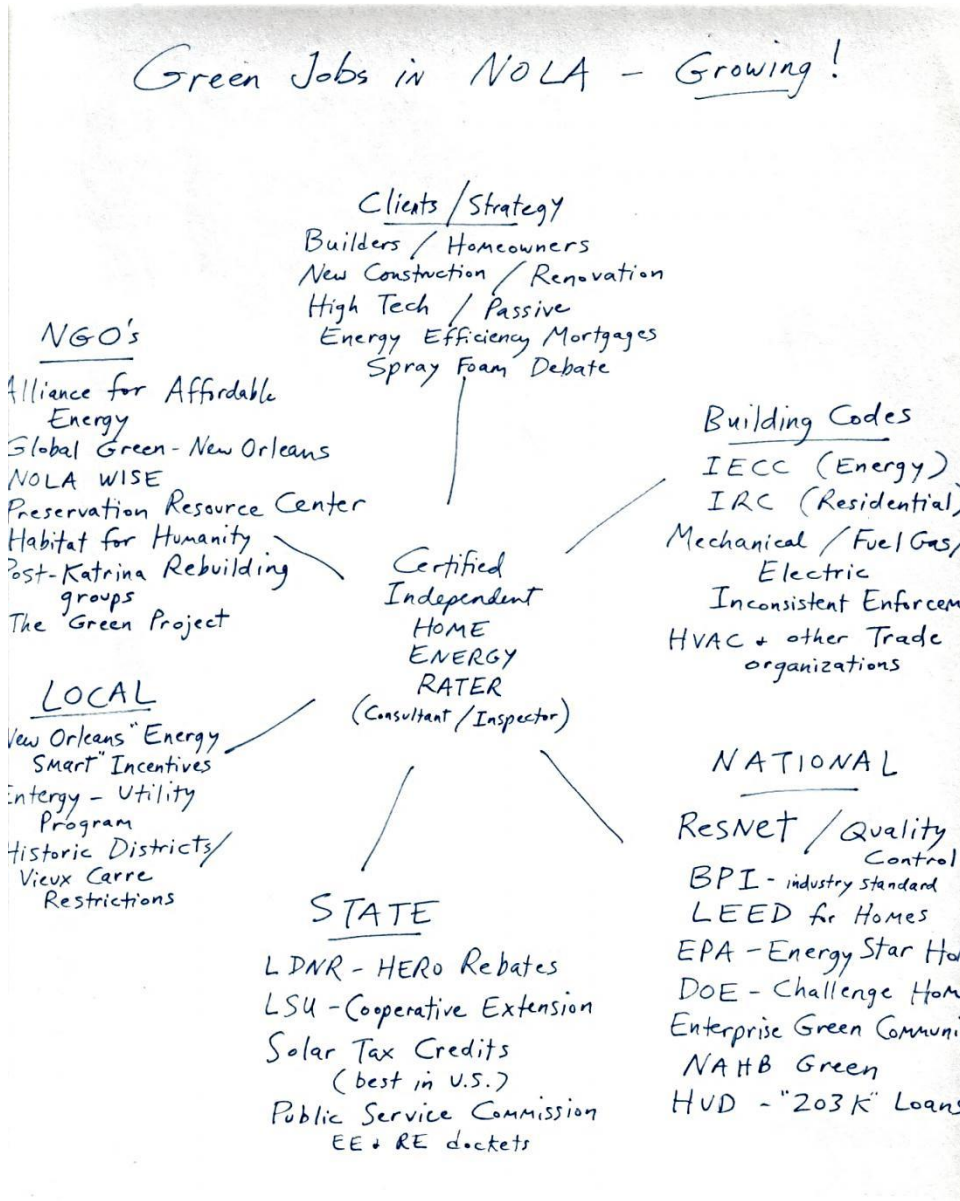 Green Jobs in NOLA - Growing!
Clients / Strategy
Builders / Homeowners
New Construction / Renovation
High Tech / Passive
Energy Efficiency Mortgages
Spray Foam Debate
NGO's
Alliance for Affordable
Energy
Global Green - New Orleans
NOLA WISE
Preservation Resource Center
Habitat for Humanity
Post-Katrina Rebuilding
groups
The Green Project
Building Codes
IECC (Energy)
IRC (Residential)
Mechanical / Fuel Gas/
Electric
Inconsistent Enforcem
HVAC + other Trade
organizations
Certified
Independent
HOME
ENERGY
RATER
(Consultant / Inspector)
LOCAL
New Orleans "Energy
Smart" Incentives
Entergy - Utility
Program
Historic Districts/
Vieux Carre
Restrictions
STATE
LDNR - HERO Rebates
LSU - Cooperative Extension
Solar Tax Credits
(best in U.S.)
Public Service Commission
EE + RE dockets
NATIONAL
ResNet / Quality
Control
BPI - industry standard
LEED for Homes
EPA - Energy Star Ho
DOE - Challenge Hom
Enterprise Green Communi
NAHB Green
HUD - "203K" Loans